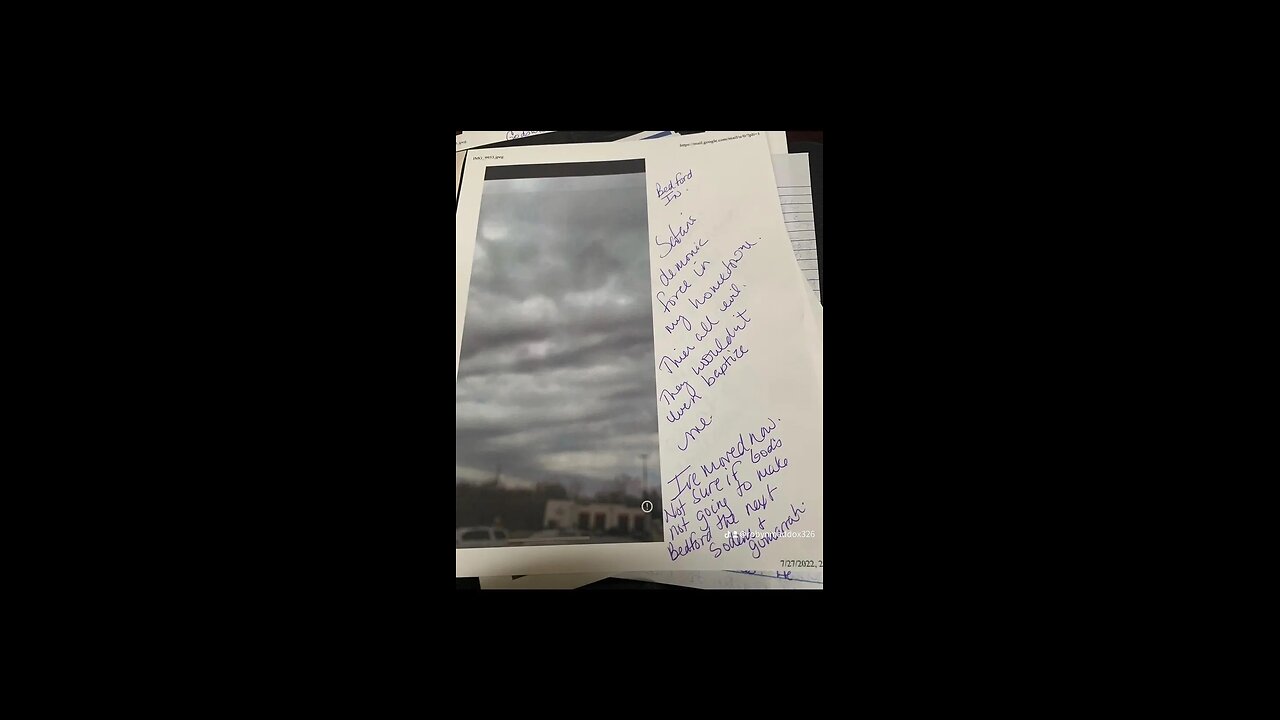 IMG_9953.jpeg
https://mail.google.com/mail/u/0/?pli=1
Bedford
In.
Satans
demonic
force in
my hometowne.
Thier all evil.
They wouldn't
even baptize
me.
I've moved now.
Not sure if God's
not going to make
Bedford the next
Sodem +
gumarrah.
7/27/2022, 2
He